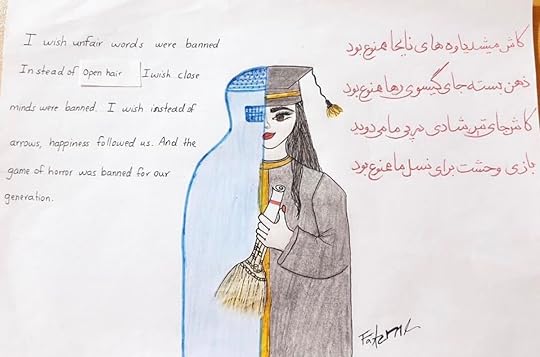 I wish unfair words were banned
Instead of Open hair I wish close
minds were banned. I wish instead of
arrows, happiness followed us. And the
game of horros was banned for our
generation.
کاش میشد یاوه های نابجا ممنوع بود
ذهن بسته جای گیسوی رها ممنوع بود
کاش جای تیر شادی در پی ما می دوید
بازی وحشت برای نسل ما ممنوع بود